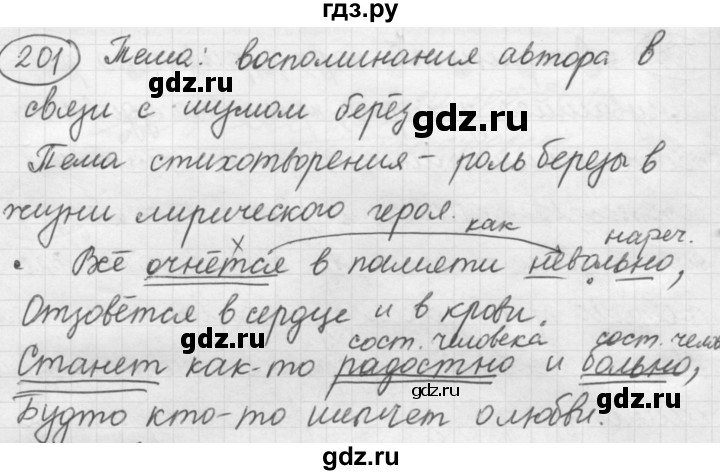 гдз.ру
201 Тема: воспоминания автора в
gdz.ru
связи с шумом берёз.
gdz.ru
Тема стихотворения – роль березы в
жизни лирического героя.
как
нареч.
• Всё очнётся в памяти невольно,
Отзовётся в сердце и в крови.
сост. человека сост. чел
Станет как-то радостно и больно,
gdz.ru
gdz.ru
Будто кто-то шепчет о любви.
gdz.ru